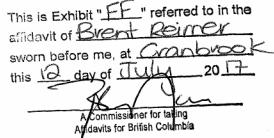 This is Exhibit " FF " referred to in the
affidavit of Brent Reimer
sworn before me, at Cranbrook
this 12 day of July 2017
A Commissioner for taking
Affidavits for British Columbia